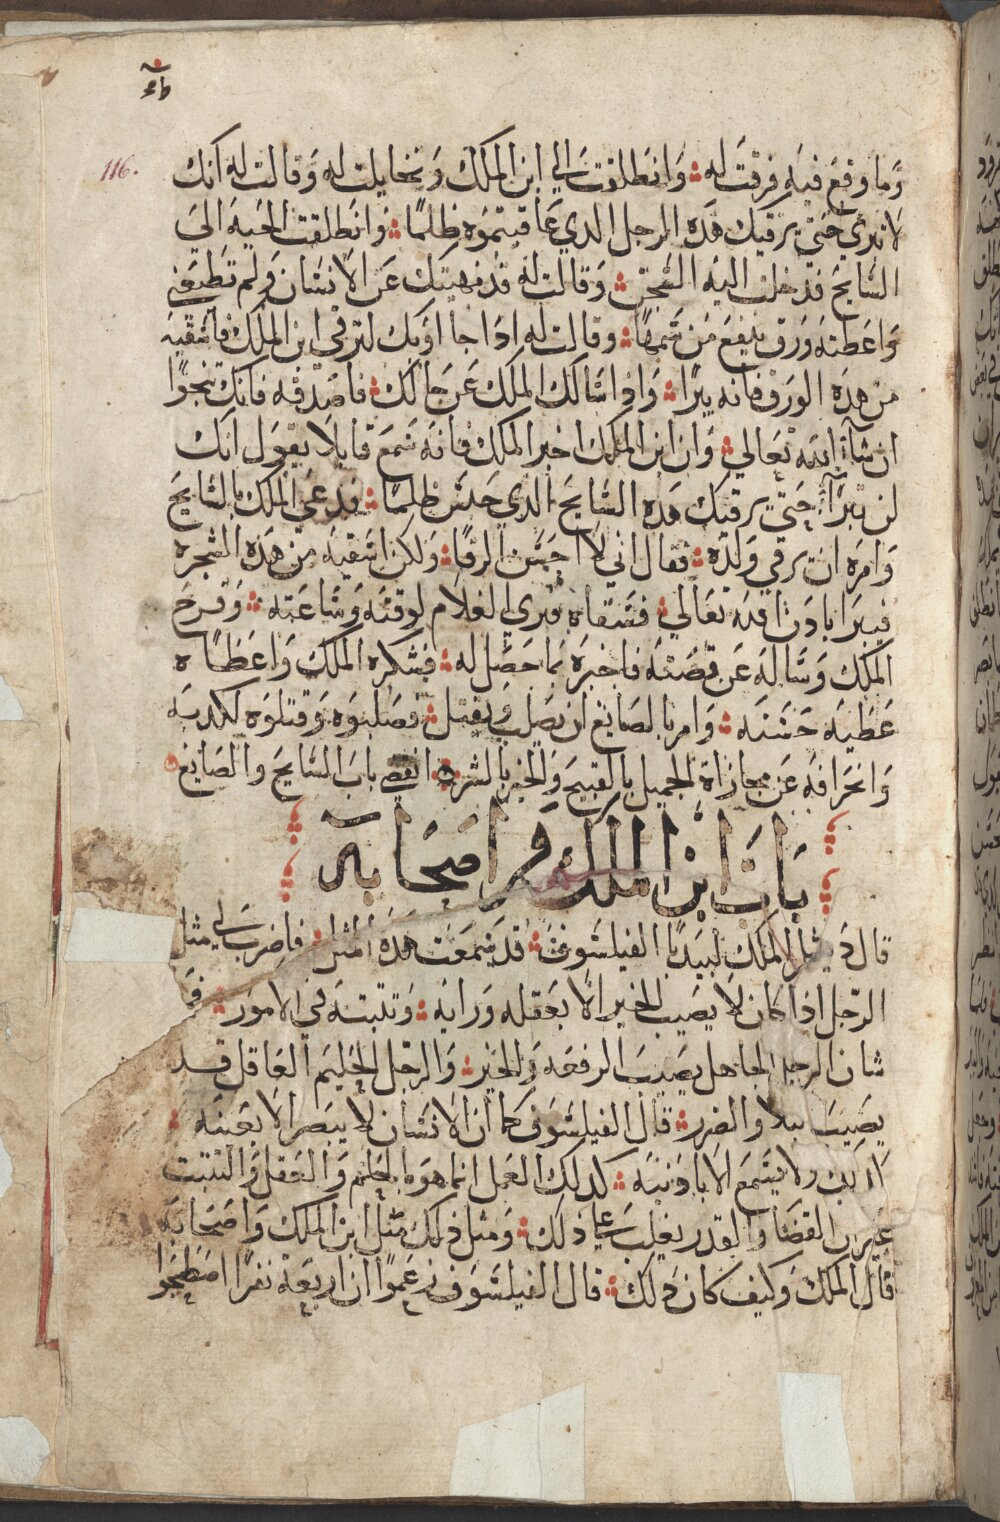 116.
وما وقع فيه فرقت له ؞ وانطلقت الي ابن الملك وتخايلت له وقالت له انك
لا تبري حتي يرقيك هذه الرجل الدي عاقبتموه ظلمًا ؞ وانطلقت الحيه الي
السايح فدخلت اليه السجن ؞ وقالت له قد نهيتك عن الانسان ولم تطيعني
واعطته ورق ينفع من سمها ؞ وقالت له ادا جا اوبك لترقي ابن الملك فاسقيه
من هده الورق فانه يبرا ؞ وادا سالك الملك عن حالك ؞ فاصدقه فانك تنجوا
ان شآء الله تعالي ؞ وان ابن الملك اخبر الملك فانه سمع قايلا يقول انك
لن تبرآ حتي يرقيك هده السايح الدي حبس ظلمًا ؞ فدعي الملك بالسايح
وامره ان يرقي ولده ؞ فقال اني لا احسن الرقا ؞ ولكن اسقيه من هذه الشجره
فيبرا بادن الله تعالي ؞ فسقاه فبري الغلام لوقته وساعته ؞ وفرح
الملك وساله عن قصته فاخبره بما حصل له ؞ فشكره الملك واعطاه
عطيه حسنه ؞ وامر بالصايغ ان يصلب ويقتل ؞ وصلبوه وقتلوه لكدبه
وانحرافه عن مجازاة الجميل بالقبيح والخير بالشر ؞ انقضي باب السايح والصايغ
باب ابن الملك واصحابه
قال دبشلم الملك لبيدبا الفيلسوف ؞ قد سمعت هده المثل ؞ فاضرب لي مثل
الرجل ادا كان لا يصيب الخير الا بعقله ورايه ؞ وتثبته في الامور ؞
شان الرجل الجاهل يصيب الرفعه والخير ؞ والرجل الحليم العاقل قد
يصيب البلا والضرر ؞ قال الفيلسوف كما ان الانسان لا يبصر الا بعينه ؞
ولا يسمع الا بادنيه ؞ كدلك العمل انما هوه بالحلم والعقل والتتبت
غير ان القضا والقدر يغلب علي دلك ؞ ومثل دلك مثل ابن الملك واصحابه
قال الملك وكيف كان دلك ؞ قال الفيلسوف زعموا ان اربعة نفرا اصطحبوا